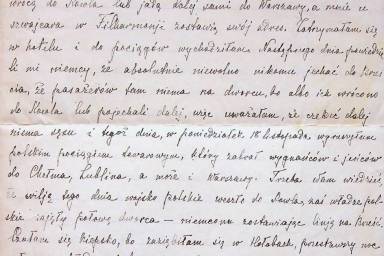 wrócę do Kowla lub jadą dalej sami do Warszawy, a mnie u
szwajcara w Filharmonji zostawią swój adres. Zatrzymałam się
w hotelu i do pociągów wychodziłam. Następnego dnia powiedzie-
li mi niemcy, że absolutnie niewolno nikomu jechać do Brześ-
cia, że pasażerów tam niema na dworcu, bo albo ich wrócono
do Kowla lub pojechali dalej, więc uważałam, że czekać dalej
niema sensu i tegoż dnia, w poniedziałek 18 listopada, wyruszyłam
polskim pociągiem towarowym, który zabrał wygnańców i jeńców
do Chełma, Lublina, a może i Warszawy. Trzeba wam wiedzieć,
że wilją tego dnia wojsko polskie weszło do Kowla, nasi władze pol-
skie zajęły połowę dworca — niemcom zostawiając linją na Brześć.
Czułam się kiepsko, bo zaziębiłam się w Hołobach, przestawszy noc